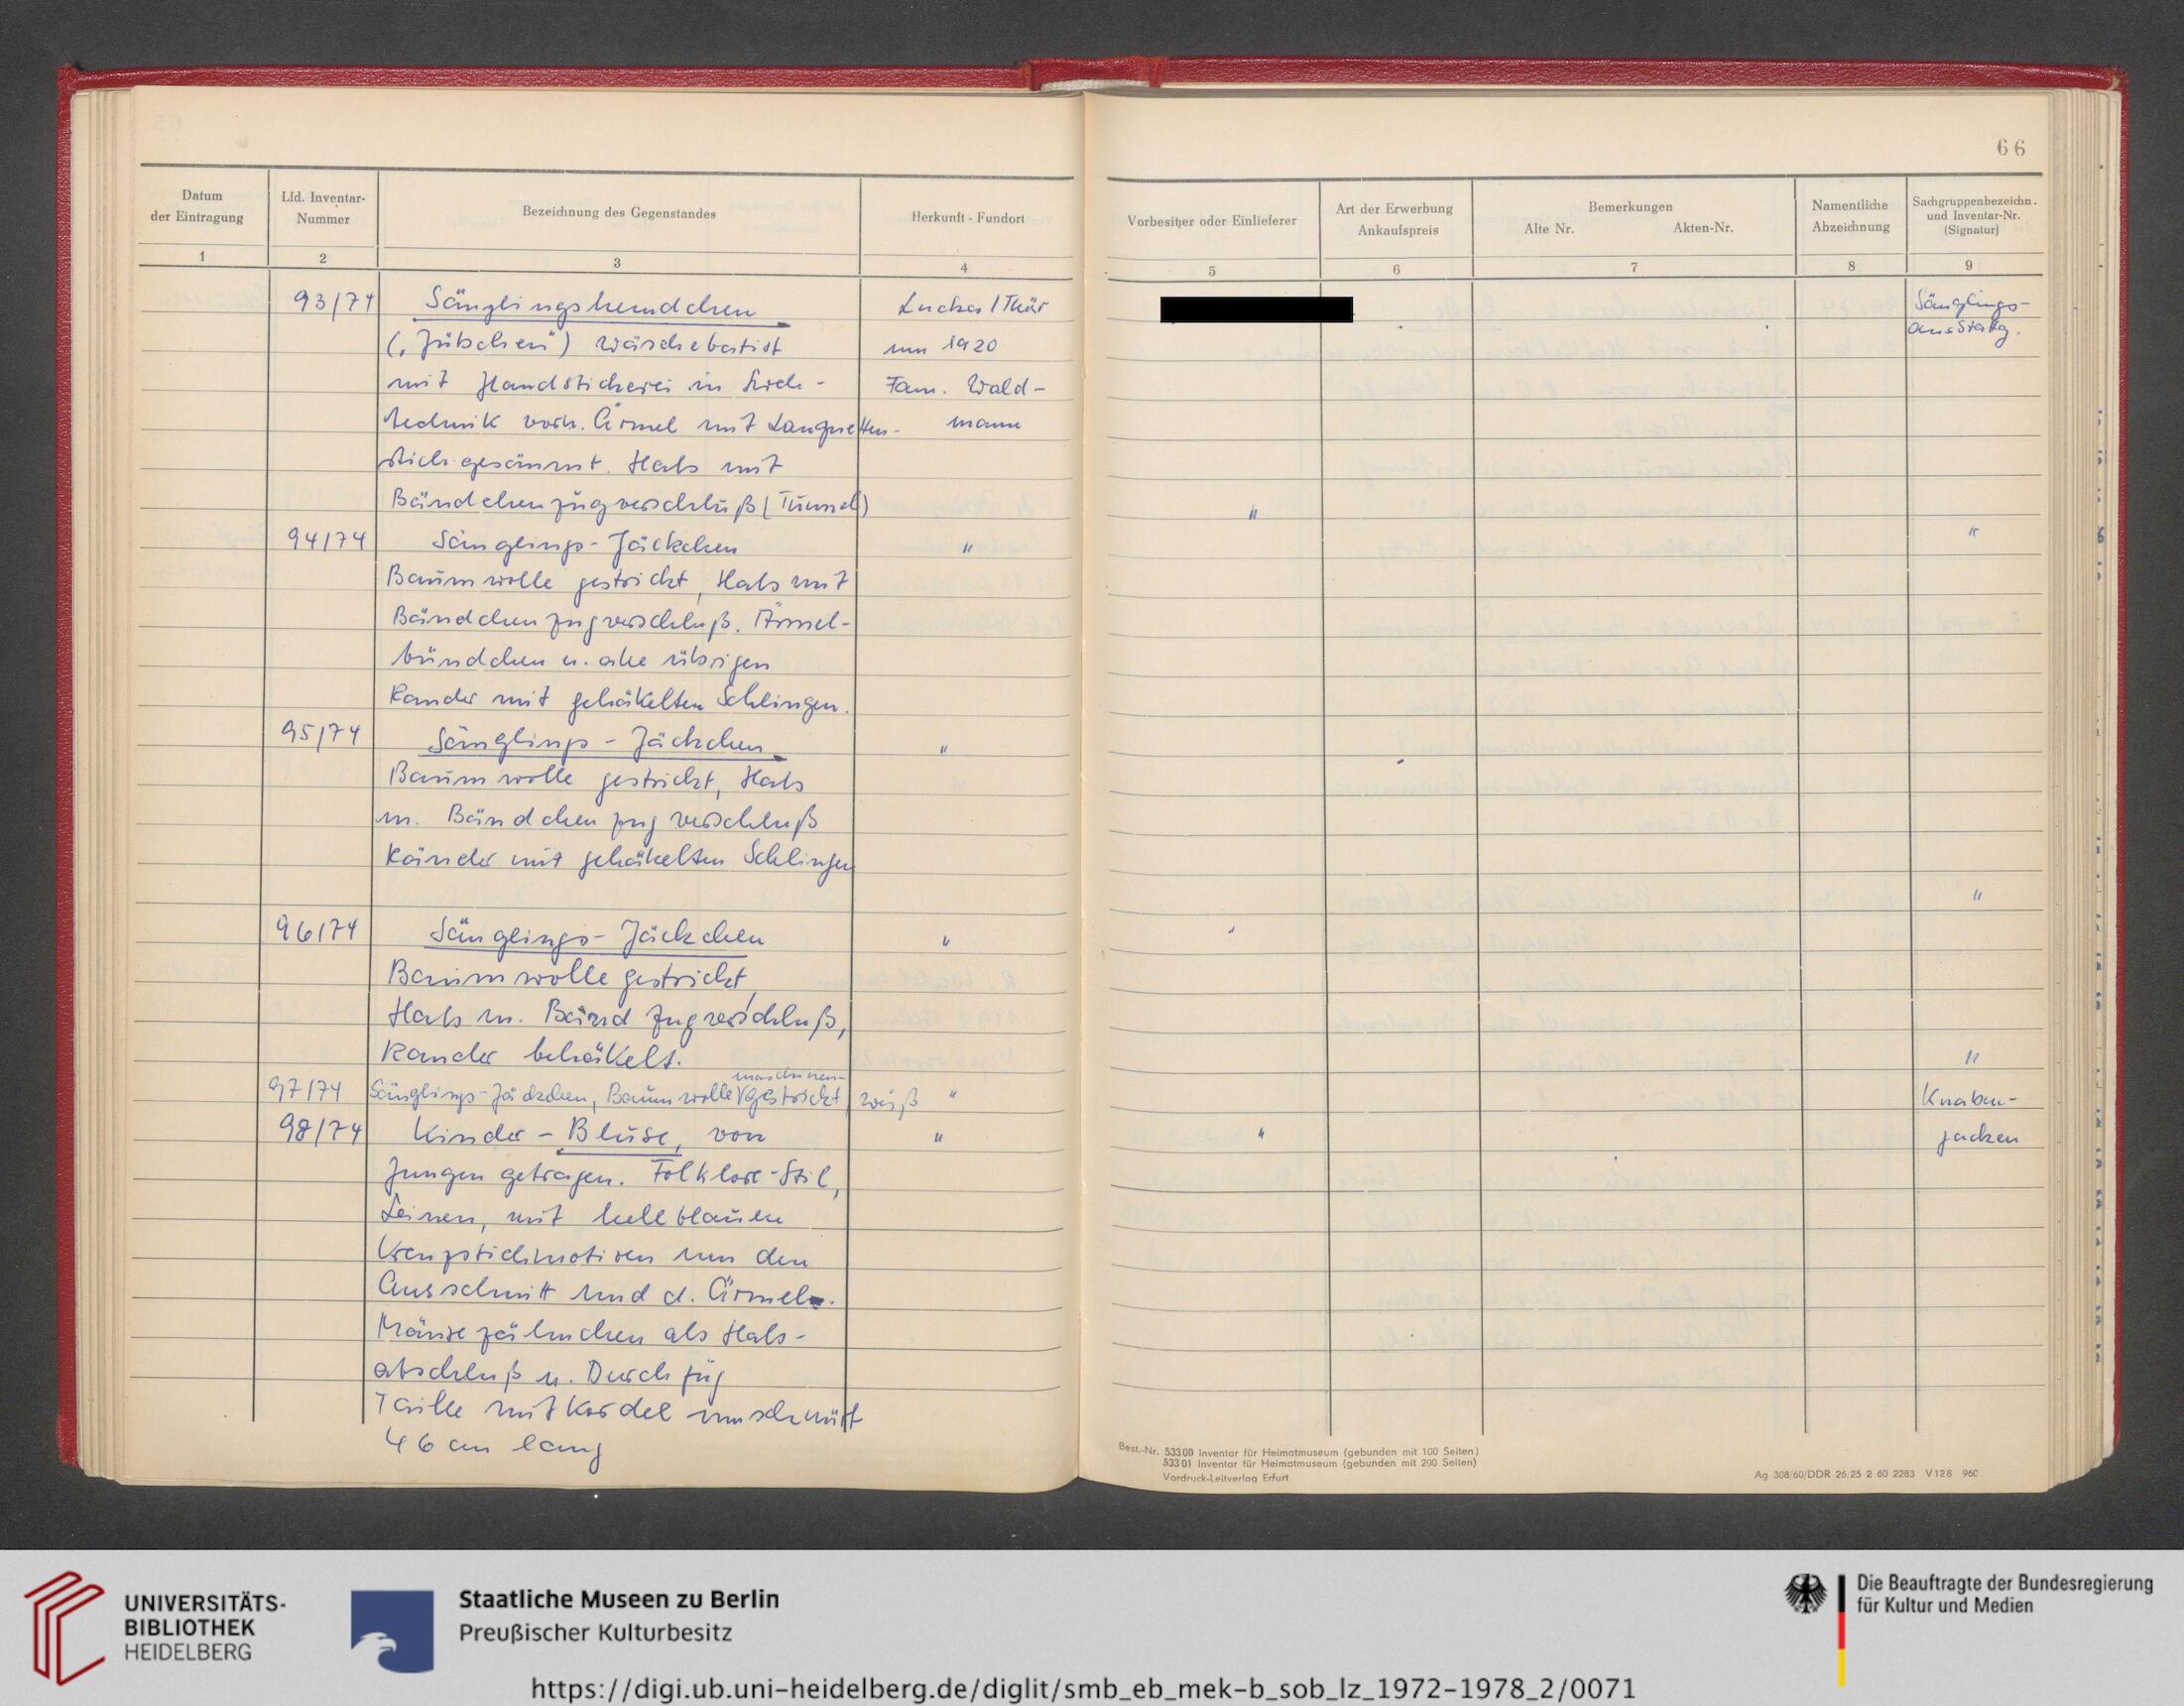 66
Datum
der Eintragung
Lfd. Inventar-
Nummer
Bezeichnung des Gegenstandes
Herkunft - Fundort
Vorbesitzer oder Einlieferer
Art der Erwerbung
Ankaufspreis
Bemerkungen
Alte Nr. Akten-Nr.
Namentliche
Abzeichnung
Sachgruppenbezeichn.
und Inventar-Nr.
(Signatur)
1 2 3 4 5 6 7 8 9
93/74 Säuglingshemdchen Lucka / Thür Säuglings-
mit Wäschebatist um 1920 ausstattg.
mit Handstickerei in Fam. Wald-
technik vorh. Ärmel mit Langnetten- mann
stich gesäumt. Hals mit
Bändchenzugverschluß (Tunnel) "
94/74 Säuglings-Jäckchen " "
Baumwolle gestrickt, Hals mit
Bändchenzugverschluß. Ärmel-
bündchen u. alle übrigen
Rander mit gehäkelten Schlingen.
95/74 Säuglings-Jäckchen "
Baumwolle gestrickt, Hals
m. Bändchenzugverschluß
Ränder mit gehäkelten Schlingen
"
96/74 Säuglings-Jäckchen " "
Baumwolle gestrickt,
Hals m. Bändzugverschluß,
Rander behäkelt. "
97/74 Säuglings-Jäckchen, Baumwolle maschinen-gestrickt, weiß " Knaben-
98/74 Kinder-Bluse, von " " jacken
Jungen getragen. Folklore-Stil,
Leinen, mit hellblauen
Kreuzstichmotiven um den
Ausschnitt und d. Ärmel.
Mäusezähnchen als Hals-
abschluß u. Durchzug
Taille mit Kordel umschnürt
46 cm lang
Best.-Nr. 53300 Inventar für Heimatmuseum (gebunden mit 100 Seiten)
53301 Inventar für Heimatmuseum (gebunden mit 200 Seiten)
Vordruck-Leitverlag Erfurt
Ag 308/60/DDR 26.25 2 60 2283 V128 960
UNIVERSITÄTS-
BIBLIOTHEK
HEIDELBERG
Staatliche Museen zu Berlin
Preußischer Kulturbesitz
Die Beauftragte der Bundesregierung
für Kultur und Medien
https://digi.ub.uni-heidelberg.de/diglit/smb_eb_mek-b_sob_lz_1972-1978_2/0071